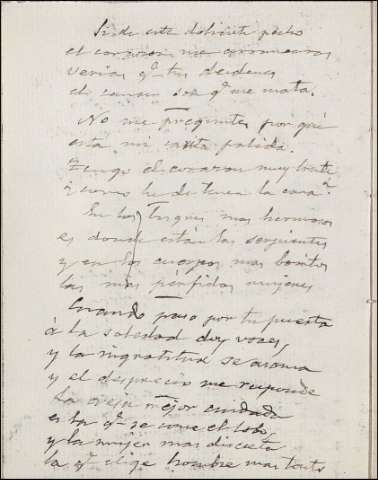 Si de este doliente pecho
el corazon me arrancaras
verias q.e tus desdenes
el cancer son q.e me mata.
No me preguntes por qué
esta mi carita palida.
Tengo el corazon muy triste
i como he de tener la cara?
En los mas hermosos
es donde están las serpientes
y en los cuerpos mas bonitos
las mas pérfidas mujeres
Cuando paso por tu puerta
á la soledad doy voces,
y la ingratitud se asoma
y el desprecio me responde
La oveja mejor cuidada
es la q.e se come el lobo,
y la mujer mas discreta
la q.e elige hombre mas tonto